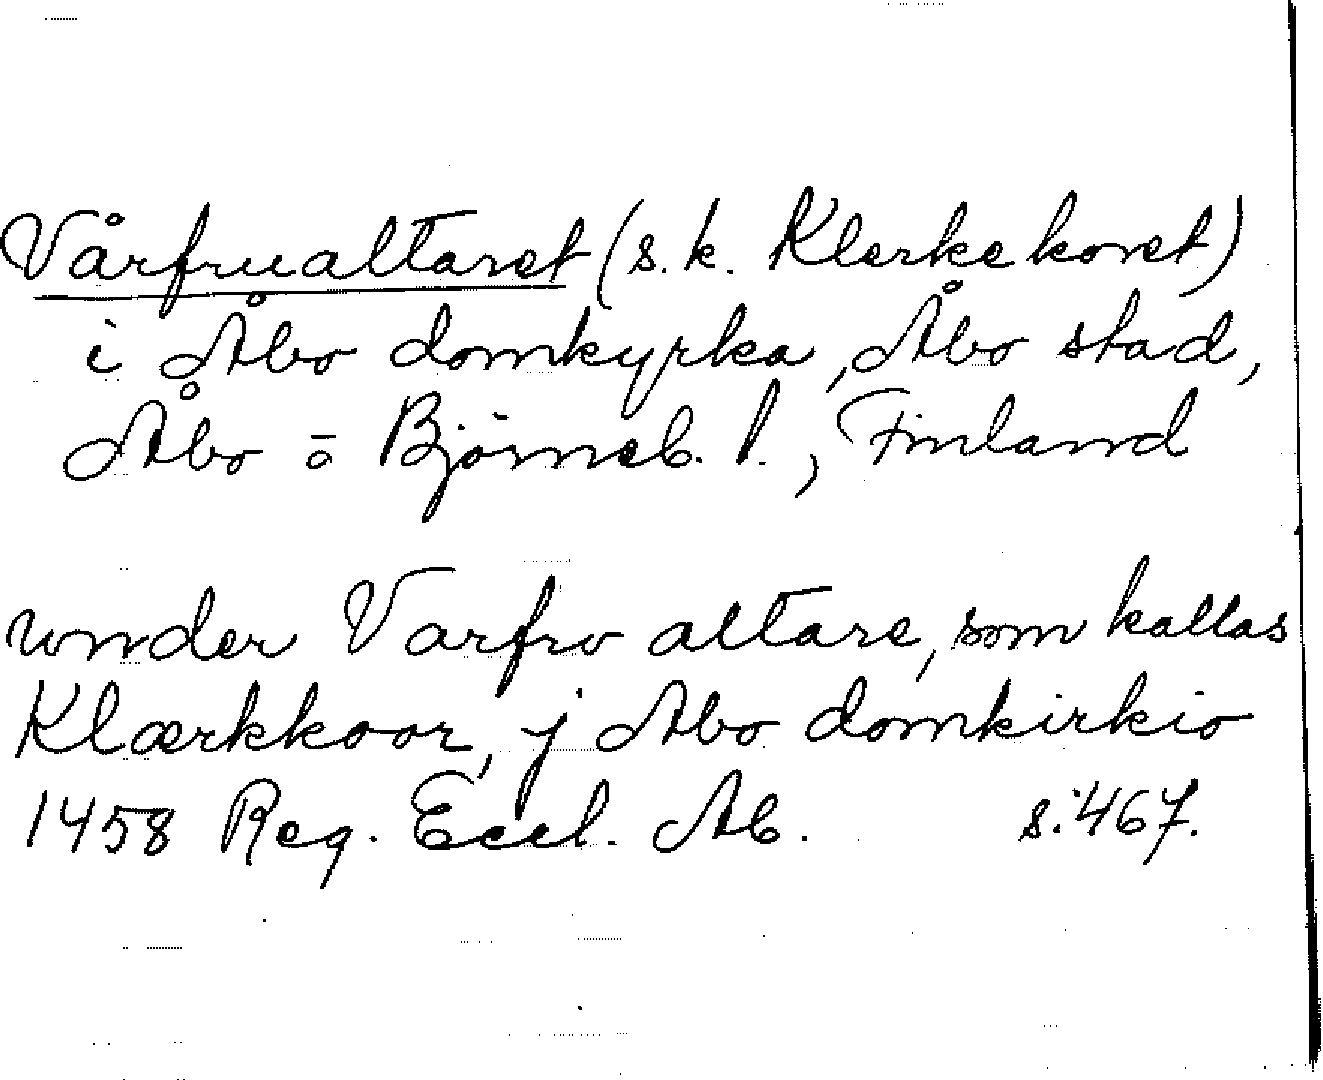 Vårfrualtaret (s.k. Klerkekoret)
i Åbo domkyrka, Åbo stad,
Åbo o Björneb. l., Finland
wnder Varfrv altare, som kallas
Klærkkoor, j Abo domkirkio
1458 Reg. Eccl. Ab. s. 467.